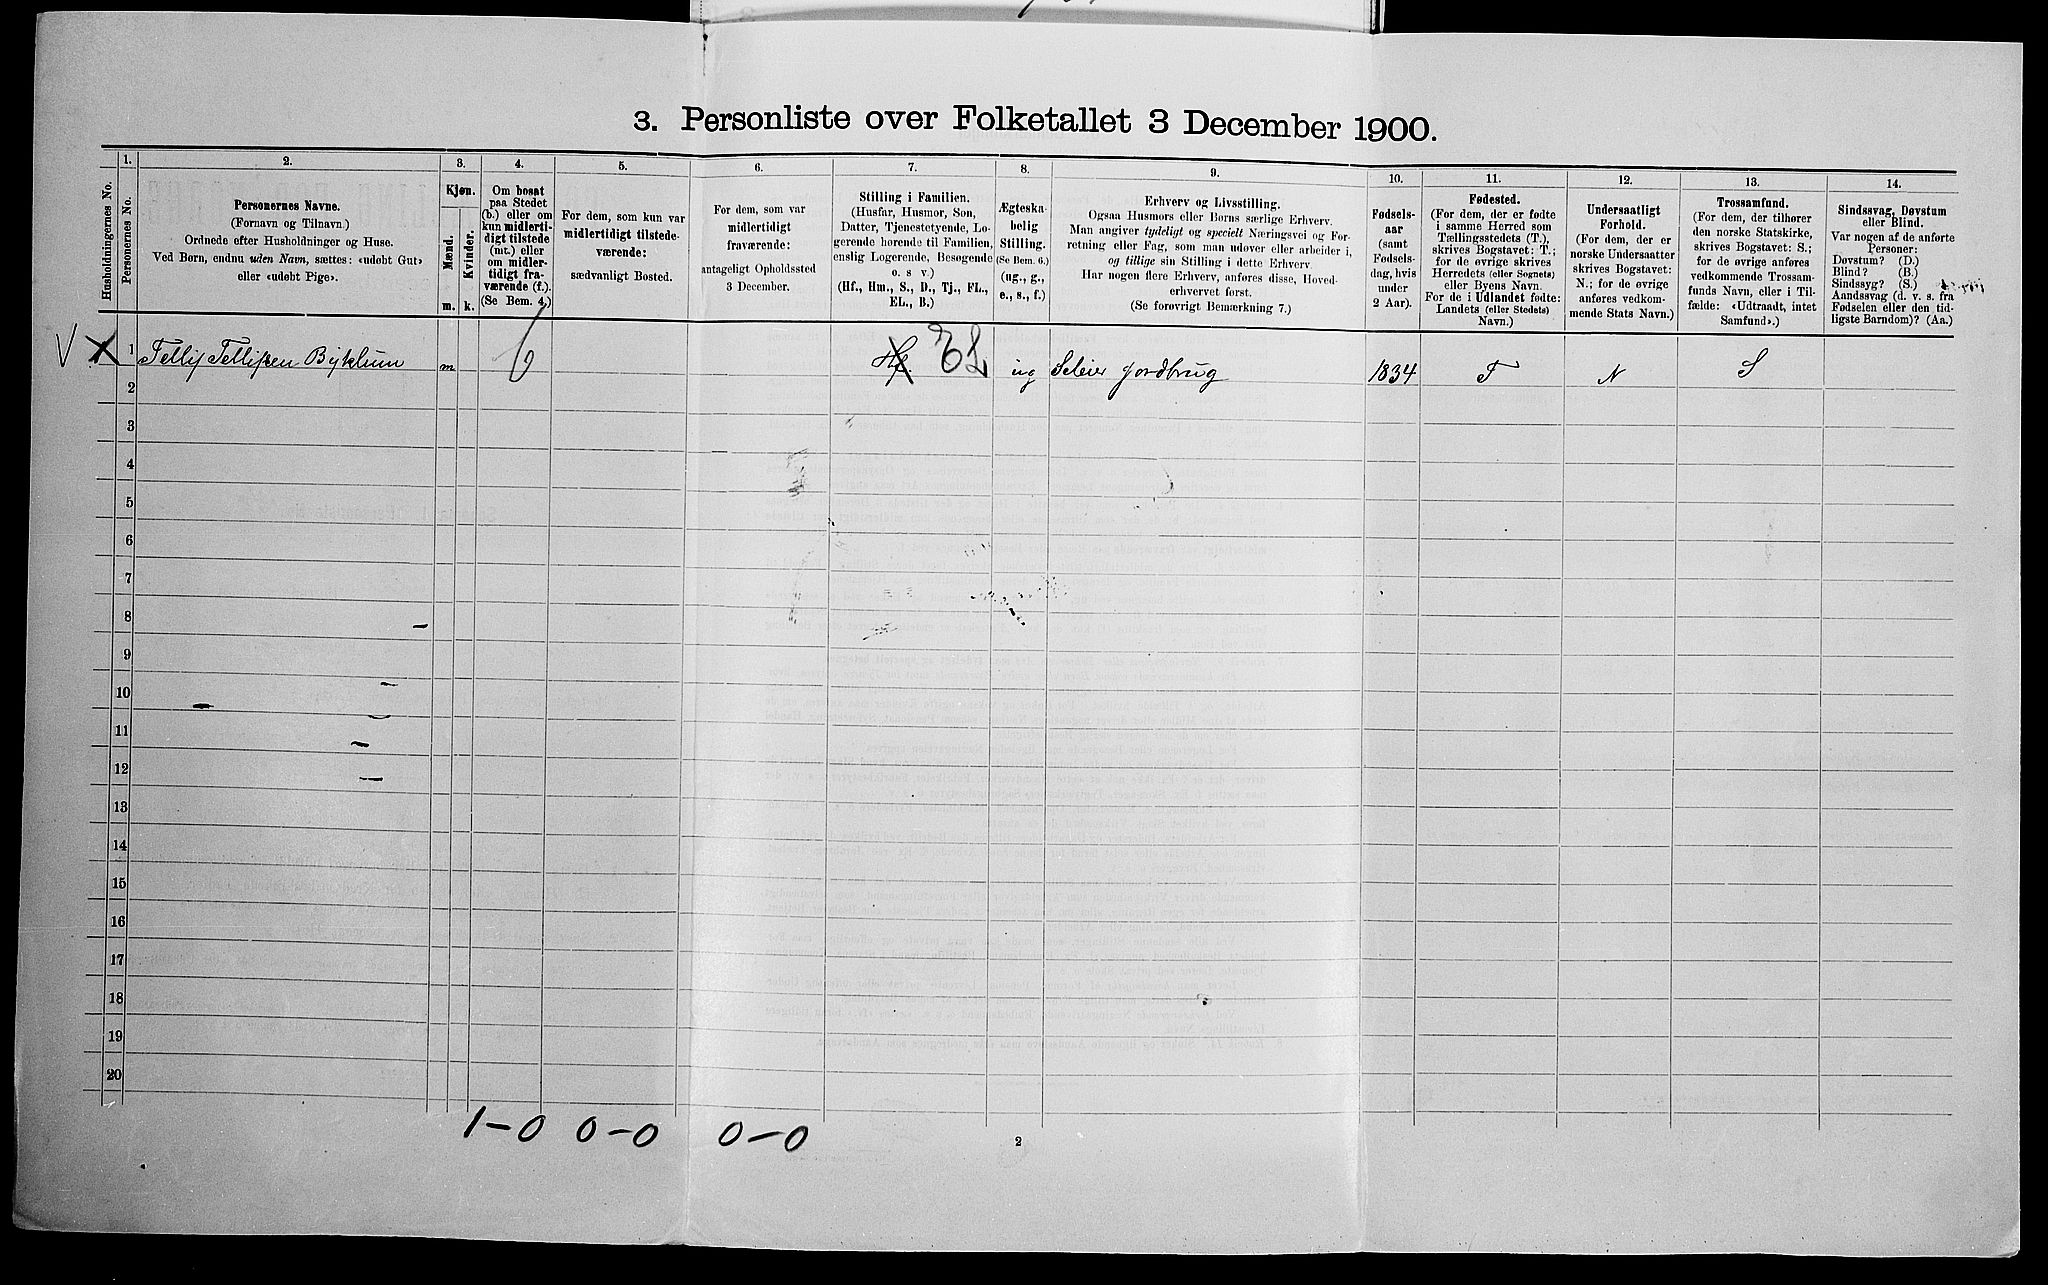 3. Personliste over Folketallet 3 December 1900.
Husholdningernes No.
1.
Personernes No.
2.
Personernes Navne.
(Fornavn og Tilnavn.)
Ordnede efter Husholdninger og Huse.
Ved Børn, endnu uden Navn, sættes: «udøbt Gut»
eller «udøbt Pige».
3.
Kjøn.
Mænd.
Kvinder.
m.
k.
4.
Om bosat
paa Stedet
(b.) eller om
kun midlerti-
digt tilstede
(mt.) eller
om midler-
tidigt fra-
værende (f.).
(Se Bem. 4.)
5.
For dem, som kun var
midlertidigt tilstede-
værende:
sædvanligt Bosted.
6.
For dem, som var
midlertidigt
fraværende:
antageligt Opholdssted
3 December.
7.
Stilling i Familien.
(Husfar, Husmor, Søn,
Datter, Tjenestetyende, Lo-
gerende hørende til Familien,
enslig Logerende, Besøgende
o. s v.)
(Hf., Hm., S., D., Tj., FL.,
EL., B.)
8.
Ægteska-
belig
Stilling.
(Se Bem. 6.)
(ug., g.,
e., s., f.)
9.
Erhverv og Livsstilling.
Ogsaa Husmors eller Børns særlige Erhverv.
Man angiver tydeligt og specielt Næringsvei og For-
retning eller Fag, som man udøver eller arbeider i,
og tillige sin Stilling i dette Erhverv.
Har nogen flere Erhverv, anføres disse, Hoved-
erhvervet først.
(Se forøvrigt Bemærkning 7.)
10.
Fødsels-
aar
(samt
Fødsels-
dag, hvis
under
2 Aar).
11.
Fødested.
(For dem, der er fødte
i samme Herred som
Tællingsstedets (T.),
skrives Bogstavet: T.;
for de øvrige skrives
Herredets (eller Sognets)
eller Byens Navn.
For de i Udlandet fødte:
Landets (eller Stedets)
Navn.)
12.
Undersaatligt
Forhold.
(For dem, der er
norske Undersaatter
skrives Bogstavet:
N.; for de øvrige
anføres vedkom-
mende Stats Navn.)
13.
Trossamfund.
(For dem, der tilhører
den norske Statskirke,
skrives Bogstavet: S.;
for de øvrige anføres
vedkommende Trossam-
funds Navn, eller i Til-
fælde: «Udtraadt, intet
Samfund».)
14.
Sindssvag, Døvstum
eller Blind.
Var nogen af de anførte
Personer:
Døvstum? (D.)
Blind? (B.)
Sindssyg? (S.)
Aandssvag (d. v. s. fra
Fødselen eller den tid-
ligste Barndom)? (Aa.)
V 1 Tellif Tellifsen Byklum m b Hf. EL ug Seleier jordbrug 1834 T N S
2
3
4
5
6
7
8
9
10
11
12
13
14
15
16
17
18
19
20
1-0 0-0 0-0
2